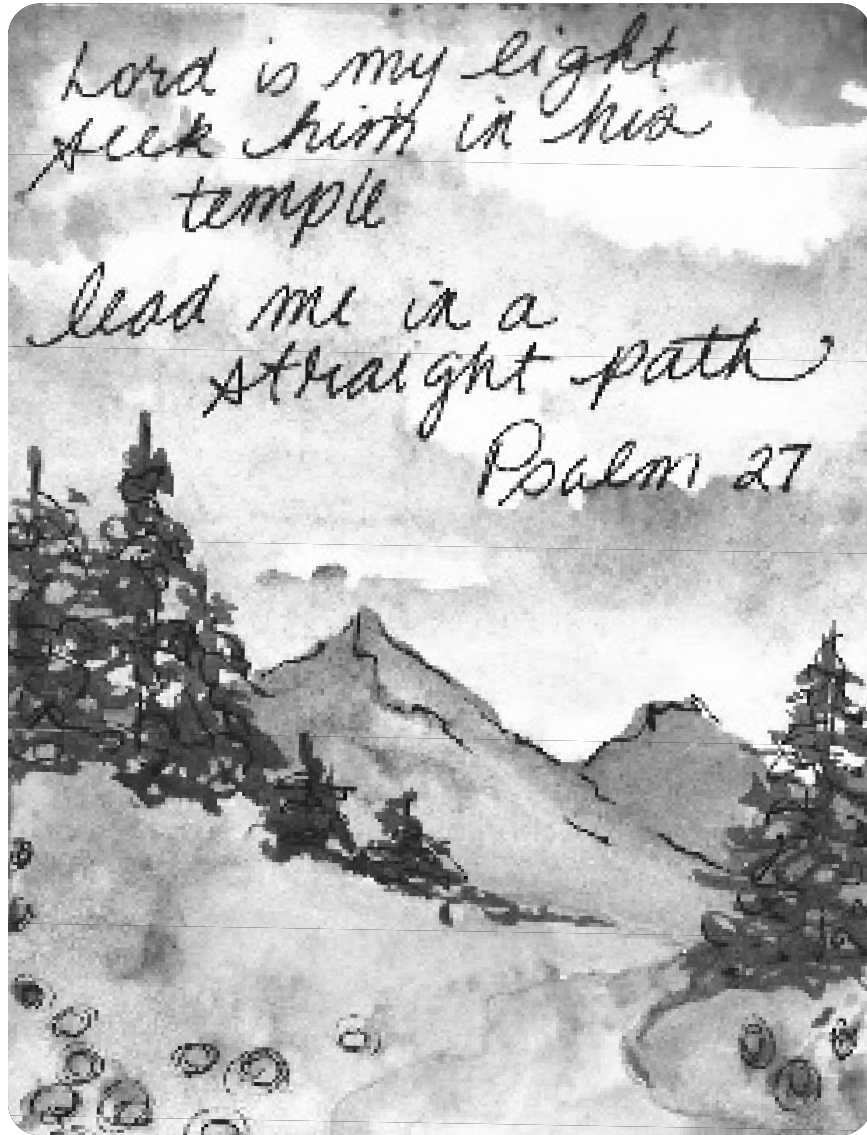 Lord is my light
seek him in his
temple
lead me in a
straight path
Psalm 27